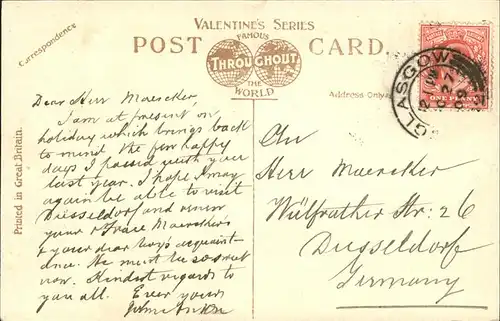 VALENTINE'S SERIES
FAMOUS
POST CARD.
THROUGHOUT
THE
WORLD
Correspondence
Address Only
Printed in Great Britain.
GLASGOW
ONE PENNY
Dear Herr Maercker,
I am at present on
holiday which brings back
to mind the few happy
days I passed with your
last year. I hope I may
again be able to visit
Düsseldorf and renew
your & Frau Maercker's
& your dear boys acquaint-
ance. He must be so great
now. Kindest regards to
you all. Ever yours
An
Herr Maercker
Wülfrather Str: 26
Düsseldorf
Germany